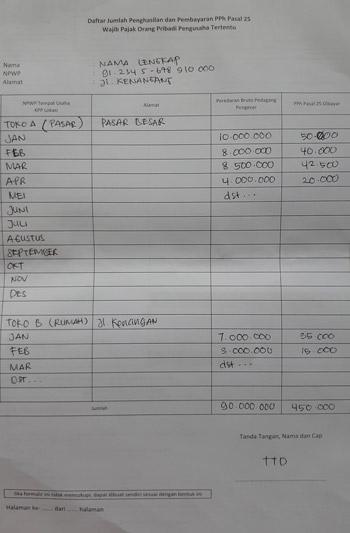 Daftar Jumlah Penghasilan dan Pembayaran PPh Pasal 25
Wajib Pajak Orang Pribadi Pengusaha Tertentu
Nama : NAMA LENGKAP
NPWP : 01.234 5-678 910 000
Alamat : Jl. KENANGAN1
NPWP Tempat Usaha KPP Lokasi Alamat Peredaran Bruto Pedagang Pengecer PPh Pasal 25 Dibayar
TOKO A (PASAR) PASAR BESAR
JAN 10.000.000 50.000
FEB 8.000.000 40.000
MAR 8.500.000 42.500
APR 4.000.000 20.000
MEI dst...
JUNI
JULI
AGUSTUS
SEPTEMBER
OKT
NOV
DES
TOKO B (RUMAH) Jl. KENANGAN
JAN 7.000.000 35.000
FEB 3.000.000 15.000
MAR dst...
DST...
Jumlah 90.000.000 450.000
Tanda Tangan, Nama dan Cap
TTD
Jika formulir ini tidak mencukupi, dapat dibuat sendiri sesuai dengan bentuk ini
Halaman ke- ...... dari ...... halaman